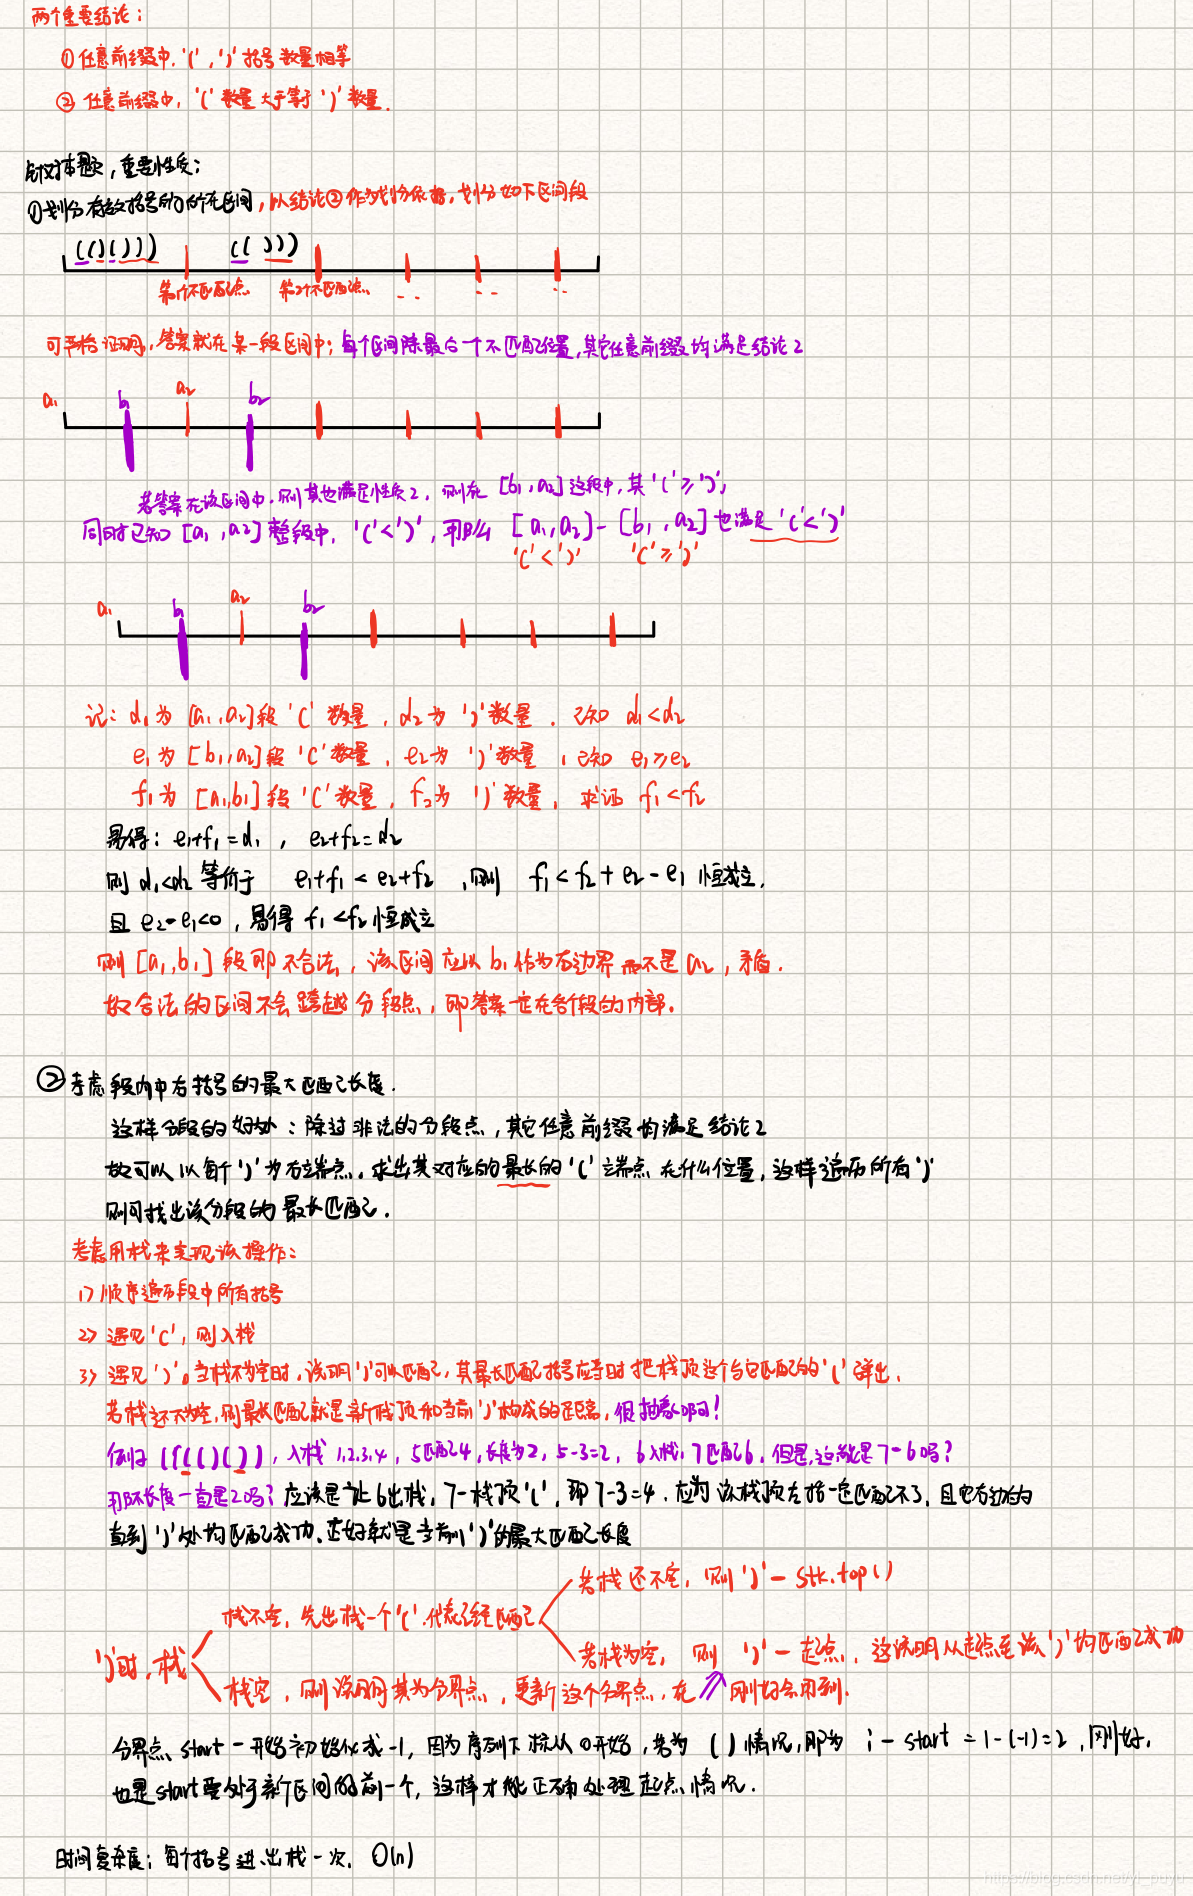 两个重要结论：
① 任意前缀中，'('，')' 括号数量相等
② 任意前缀中，'(' 数量大于等于 ')' 数量．
针对本题，重要性质：
①划分有效括号的所在区间，以结论②作为划分依据，划分如下区间段
(()()))
(( )))
第1个不匹配点 第2个不匹配点 ... ... ...
可严格证明，答案就在某一段区间中；每个区间除最后一个不匹配位置，其它任意前缀均满足结论2
a₁ b₁ a₂ b₂
若答案在该区间中，则其也满足性质2，则在 [b₁,a₂] 这段中，其 '(' ≥ ')'，
同时已知 [a₁,a₂] 整段中，'(' < ')'，那么 [a₁,a₂] - [b₁,a₂] 也满足 '(' < ')'
'(' < ')' '(' ≥ ')'
a₁ b₁ a₂ b₂
记：d₁为 [a₁,a₂]段 '(' 数量，d₂为 ')' 数量．已知 d₁<d₂
e₁为 [b₁,a₂]段 '(' 数量，e₂为 ')' 数量，已知 e₁≥e₂
f₁为 [a₁,b₁]段 '(' 数量，f₂为 ')' 数量，求证 f₁<f₂
易得：e₁+f₁=d₁ ，e₂+f₂=d₂
则 d₁<d₂ 等价于 e₁+f₁ < e₂+f₂ ，则 f₁<f₂+e₂-e₁ 恒成立，
且 e₂-e₁<0，易得 f₁<f₂ 恒成立
则 [a₁,b₁] 段即不合法，该区间应以 b₁ 作为右边界而不是 a₂，矛盾．
故合法的区间不会跨越分段点，即答案一定在各个段的内部。
② 考虑段内中右括号的最大匹配长度．
这样分段的好处：除过非法的分段点，其它任意前缀均满足结论2
故可以以每个 ')' 为右端点，求出其对应的最长的 '(' 左端点在什么位置，这样遍历所有 ')'
则可找出该分段的最长匹配．
考虑用栈来实现该操作：
1> 顺序遍历段中所有括号
2> 遇见 '('，则入栈
3> 遇见 ')'。当栈不为空时，说明 ')' 可以匹配，其最长匹配括号应当时把栈顶这个与它匹配的 '(' 弹出，
若栈还不为空，则最长匹配就是新栈顶和当前 ')' 构成的距离，很抽象啊！
例如 (((()())，入栈 1,2,3,4，5匹配4，长度为2，5-3=2，6入栈，7匹配6，但是，这就是 7-6 吗？
那不长度一直是2吗？应该是让6出栈，7-栈顶 '('，即 7-3=4．应为该栈顶左括一定匹配不了，且它右边的
直到 ')' 处均匹配成功，正好就是当前 ')' 的最大匹配长度
若栈还不空，则 ')' - stk.top()
栈不空，先出栈一个 '('．代表已经匹配
')'时，栈
若栈为空，则 ')' - 起点，这说明从起点至该 ')' 均匹配成功
栈空，则说明其为分界点，更新这个分界点，在 刚好会用到．
分界点 start 一开始初始化成 -1，因为序列下标从0开始，若为 () 情况，即为 i - start = 1-(-1)=2，刚好．
也是 start 要处于新区间的前一个，这样才能正确处理起点情况．
时间复杂度：每个括号进、出栈一次，O(n)
https://blog.csdn.net/yl_puyu